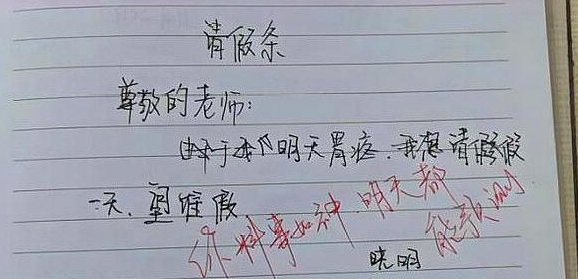 请假条
尊敬的老师:
由于本人明天胃疼.我想请假
一天.望准假
你料事如神.明天都能预测
晓明